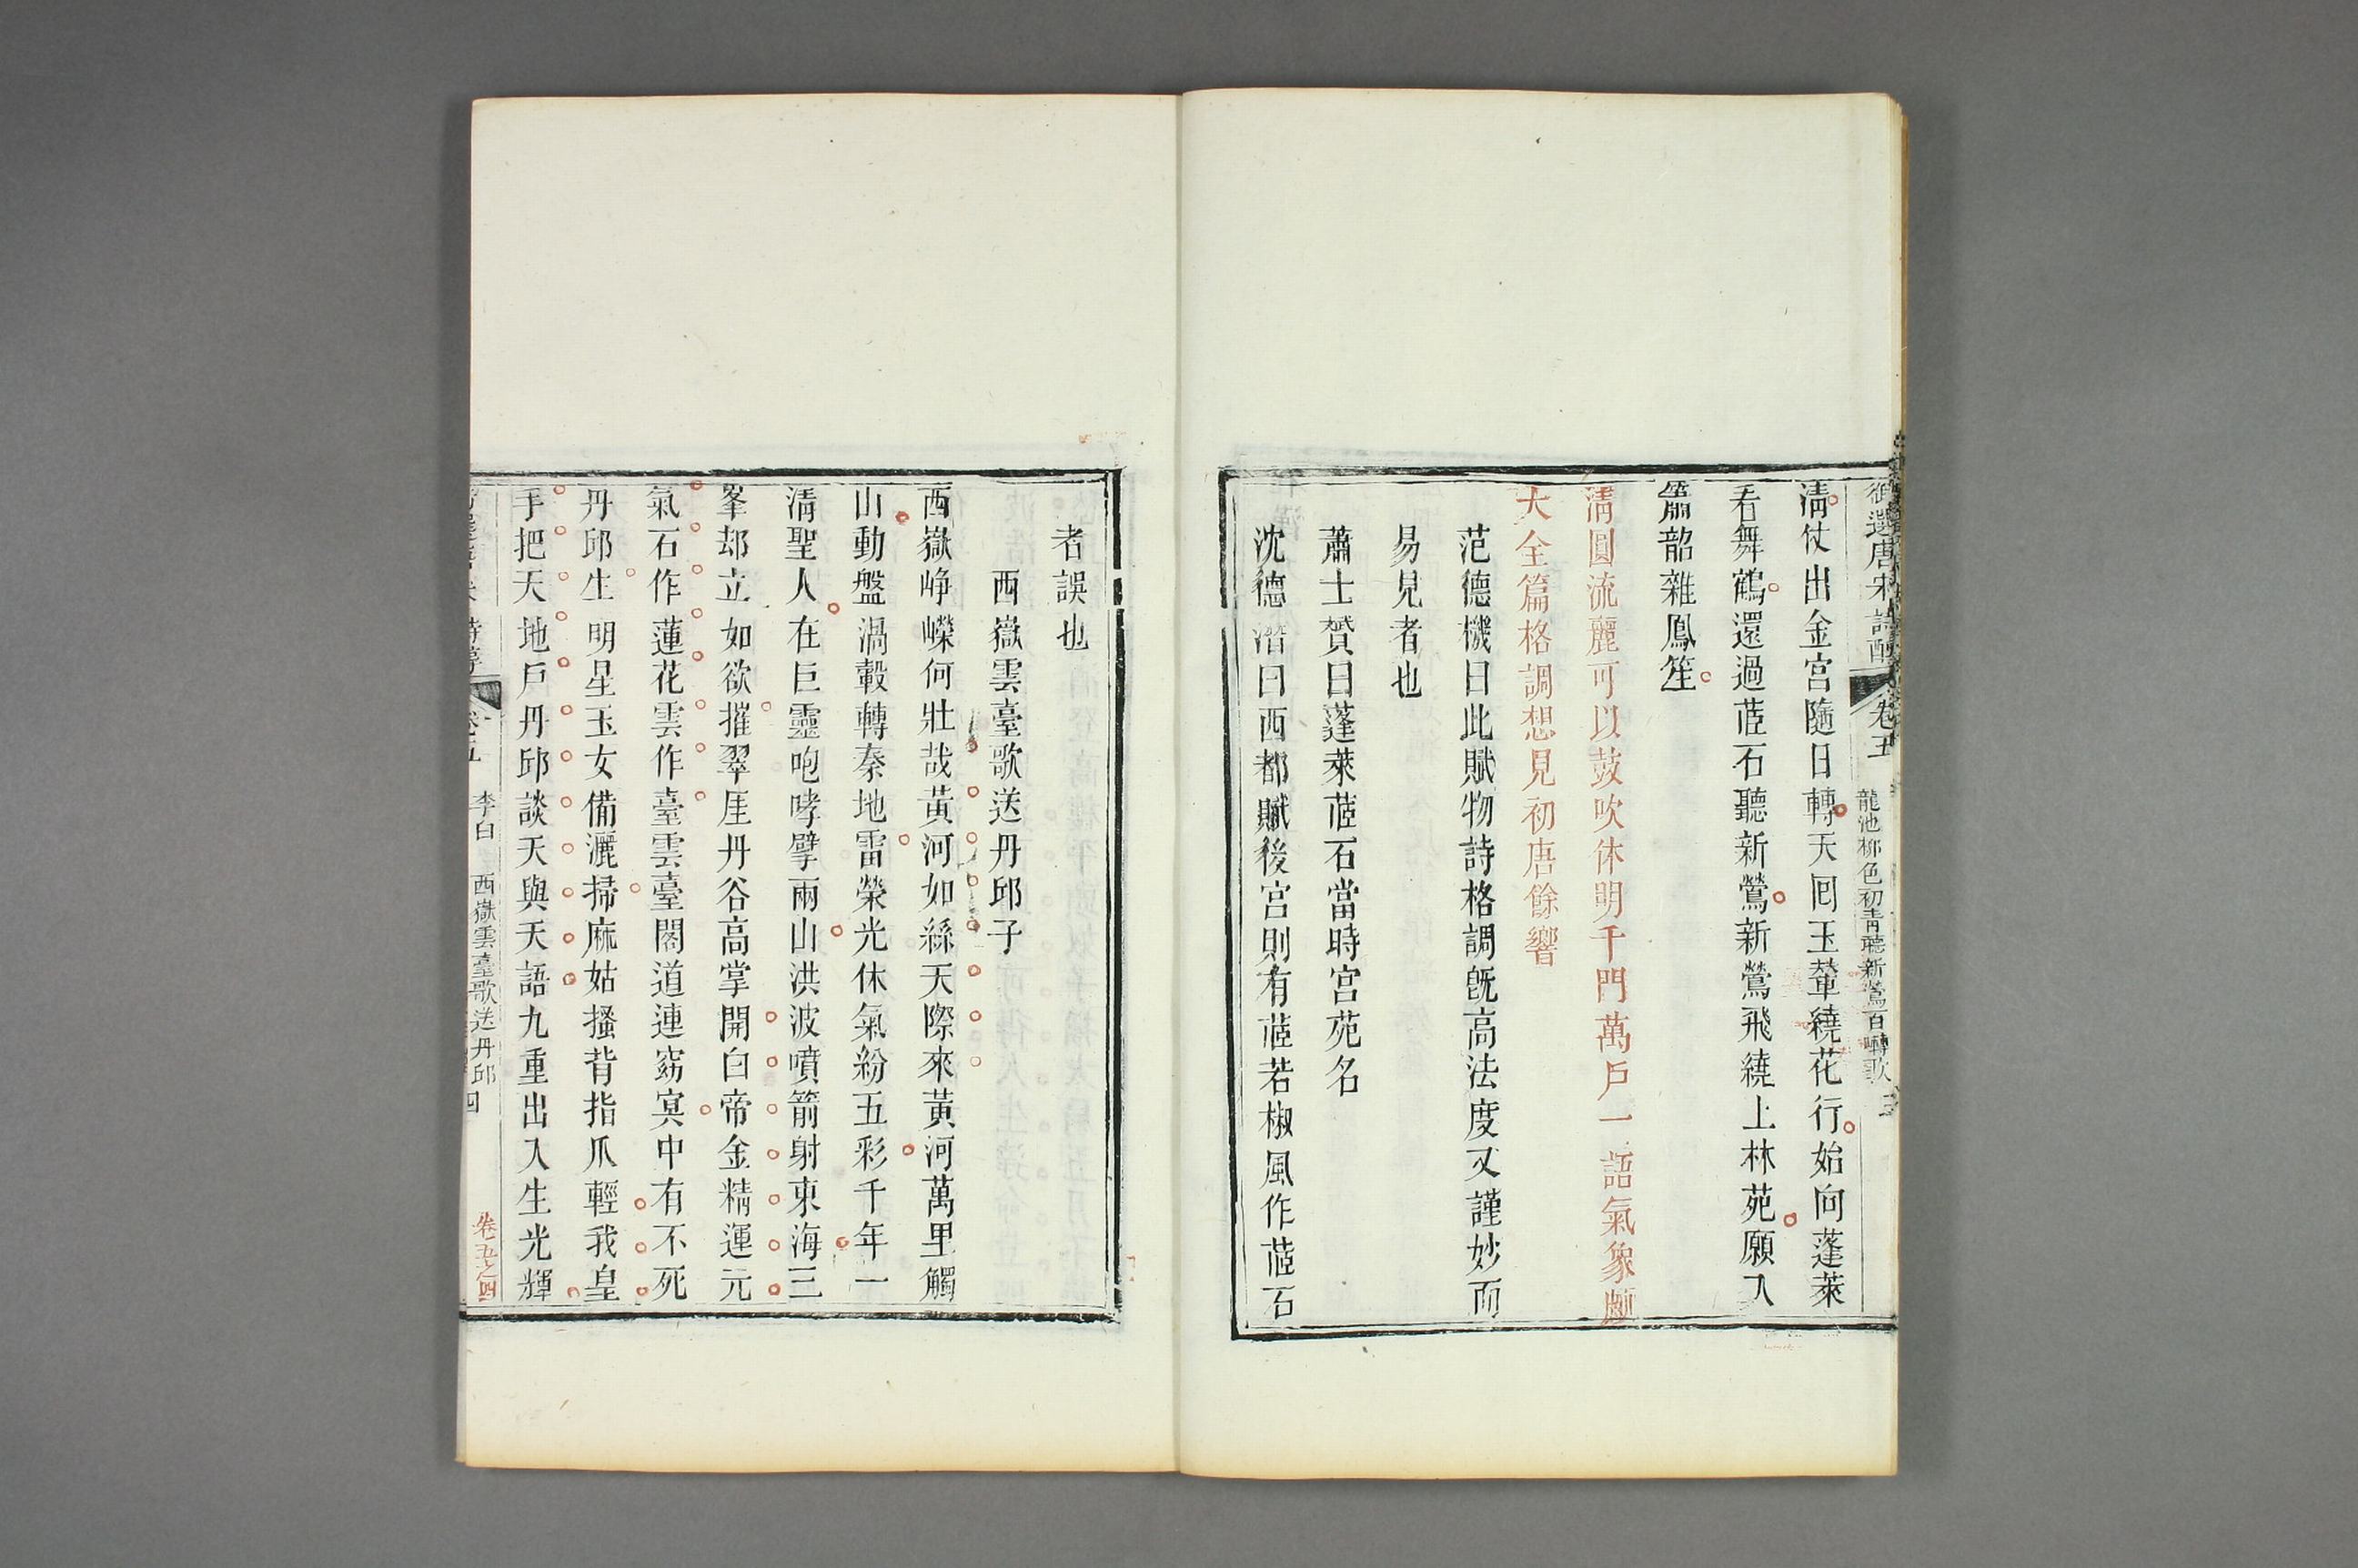 御選唐宋詩醇 卷五 龍池柳色初青聽新鶯百囀歌 三
淸仗出金宮隨日轉天囘玉輦繞花行始向蓬萊
看舞鶴還過茝石聽新鶯新鶯飛繞上林苑願入
簫韶雜鳳笙
淸圓流麗可以鼓吹休明千門萬戶一語氣象頗
大全篇格調想見初唐餘響
范德機曰此賦物詩格調旣高法度又謹妙而
易見者也
蕭士贇曰蓬萊茝石當時宮苑名
沈德潛曰西都賦後宮則有茝若椒風作茝石
者誤也
西嶽雲臺歌送丹邱子
西嶽崢嶸何壯哉黃河如絲天際來黃河萬里觸
山動盤渦轂轉秦地雷榮光休氣紛五彩千年一
淸聖人在巨靈咆哮擘兩山洪波噴箭射東海三
峯却立如欲摧翠厓丹谷高掌開白帝金精運元
氣石作蓮花雲作臺雲臺閣道連窈冥中有不死
丹邱生明星玉女備灑掃麻姑搔背指爪輕我皇
手把天地戶丹邱談天與天語九重出入生光輝
卷五 李白 西嶽雲臺歌送丹邱 四
卷五之四